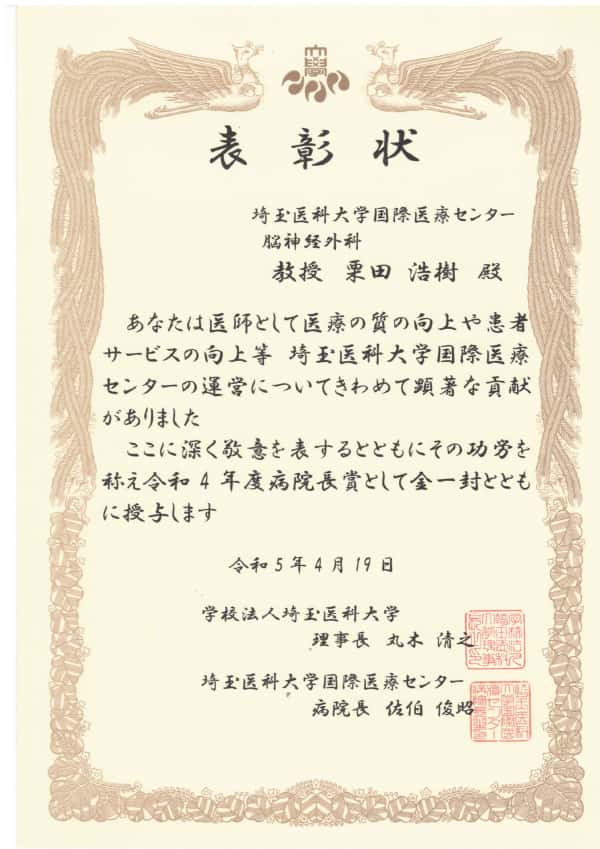 表彰状
埼玉医科大学国際医療センター
脳神経外科
教授 栗田 浩樹 殿
あなたは医師として医療の質の向上や患者
サービスの向上等 埼玉医科大学国際医療
センターの運営についてきわめて顕著な貢献
がありました
ここに深く敬意を表するとともにその功労を
称え令和4年度病院長賞として金一封ととも
に授与します
令和5年4月19日
学校法人埼玉医科大学
理事長 丸木 清之
埼玉医科大学国際医療センター
病院長 佐伯 俊昭